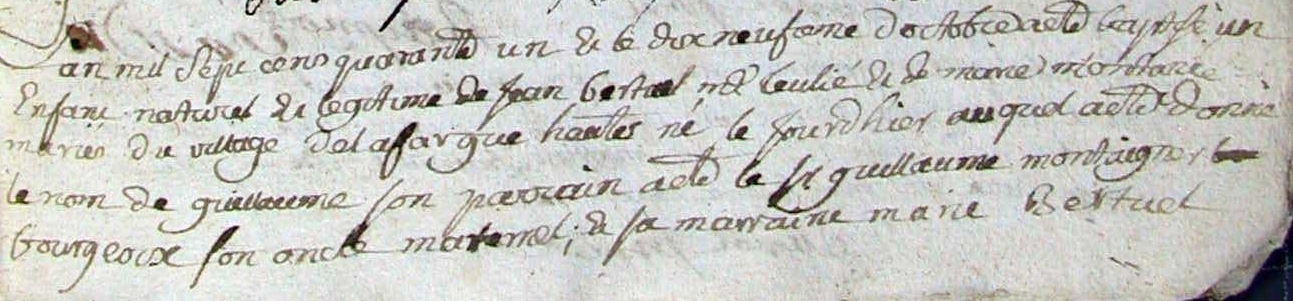 an mil sept cens quarante un & le dix neufieme d'octobre a été baptisé un
Enfant naturel & legitime de Jean bertuel & de marie montanie
mariés du village de lafargue hautes né le jour d'hier auquel a été donné
le nom de guillaume son parrain a été le sr guillaume montaigner
bourgeoix son oncle maternel, & sa marraine marie Bertuel